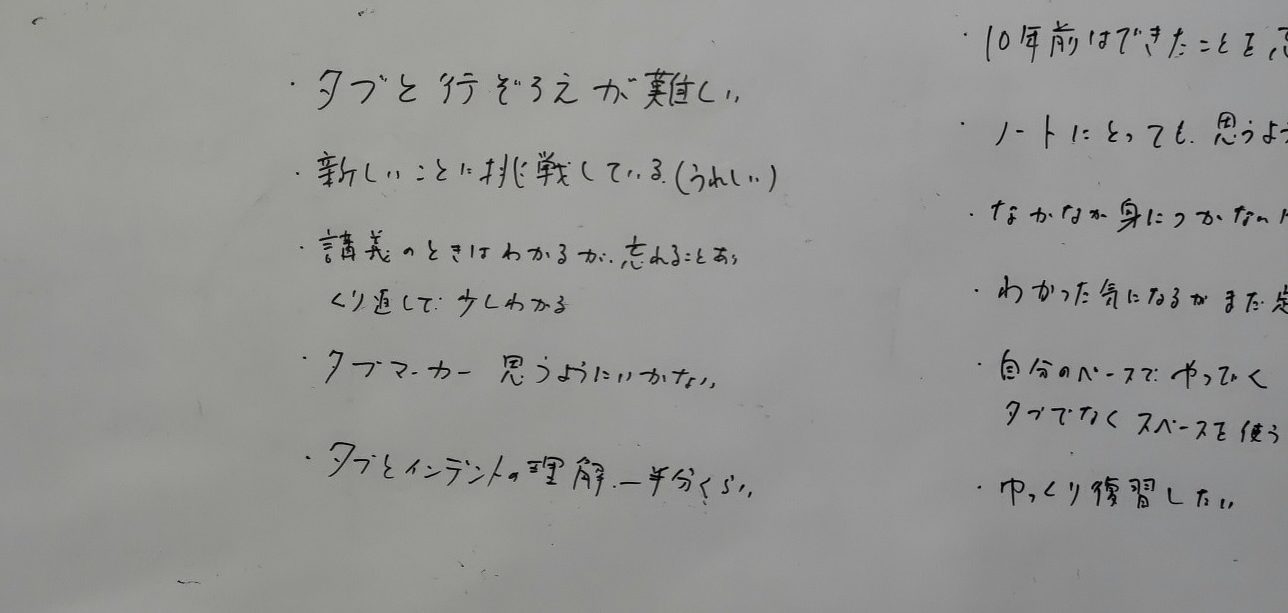 ・タブと行ぞろえが難しい
・新しいことに挑戦している(うれしい)
・講義のときはわかるが、忘れることあり
くり返して少しわかる
・タブマーカー 思うようにいかない
・タブとインデントの理解―半分くらい
・10年前はできたことを
・ノートにとっても、思うよう
・なかなか身につかない
・わかった気になるがまだ
・自分のペースでやっていく
タブでなくスペースを使う
・ゆっくり復習したい